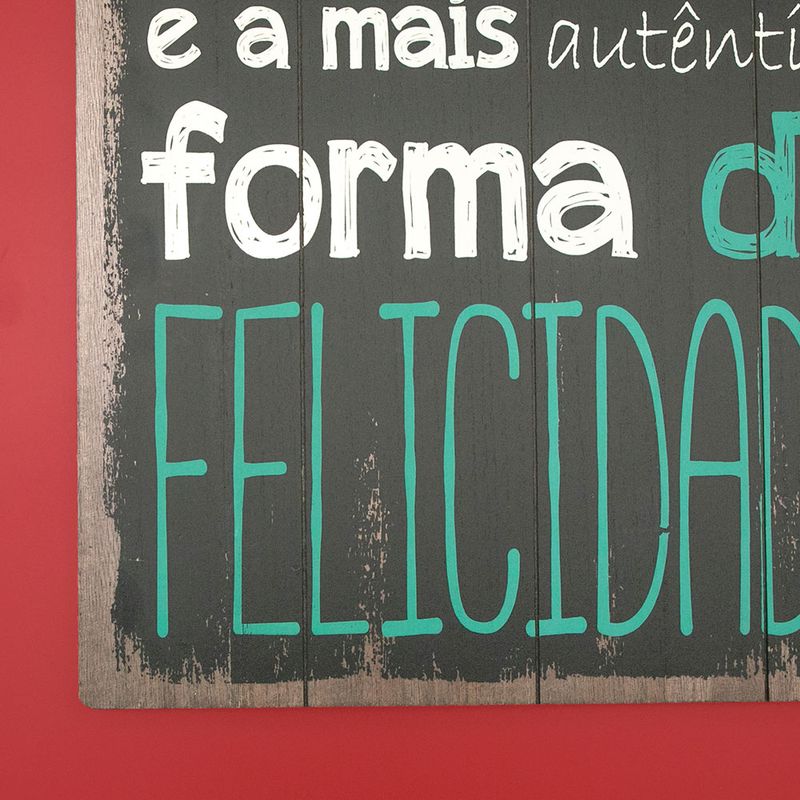 e a mais autênti
forma d
FELICIDAD